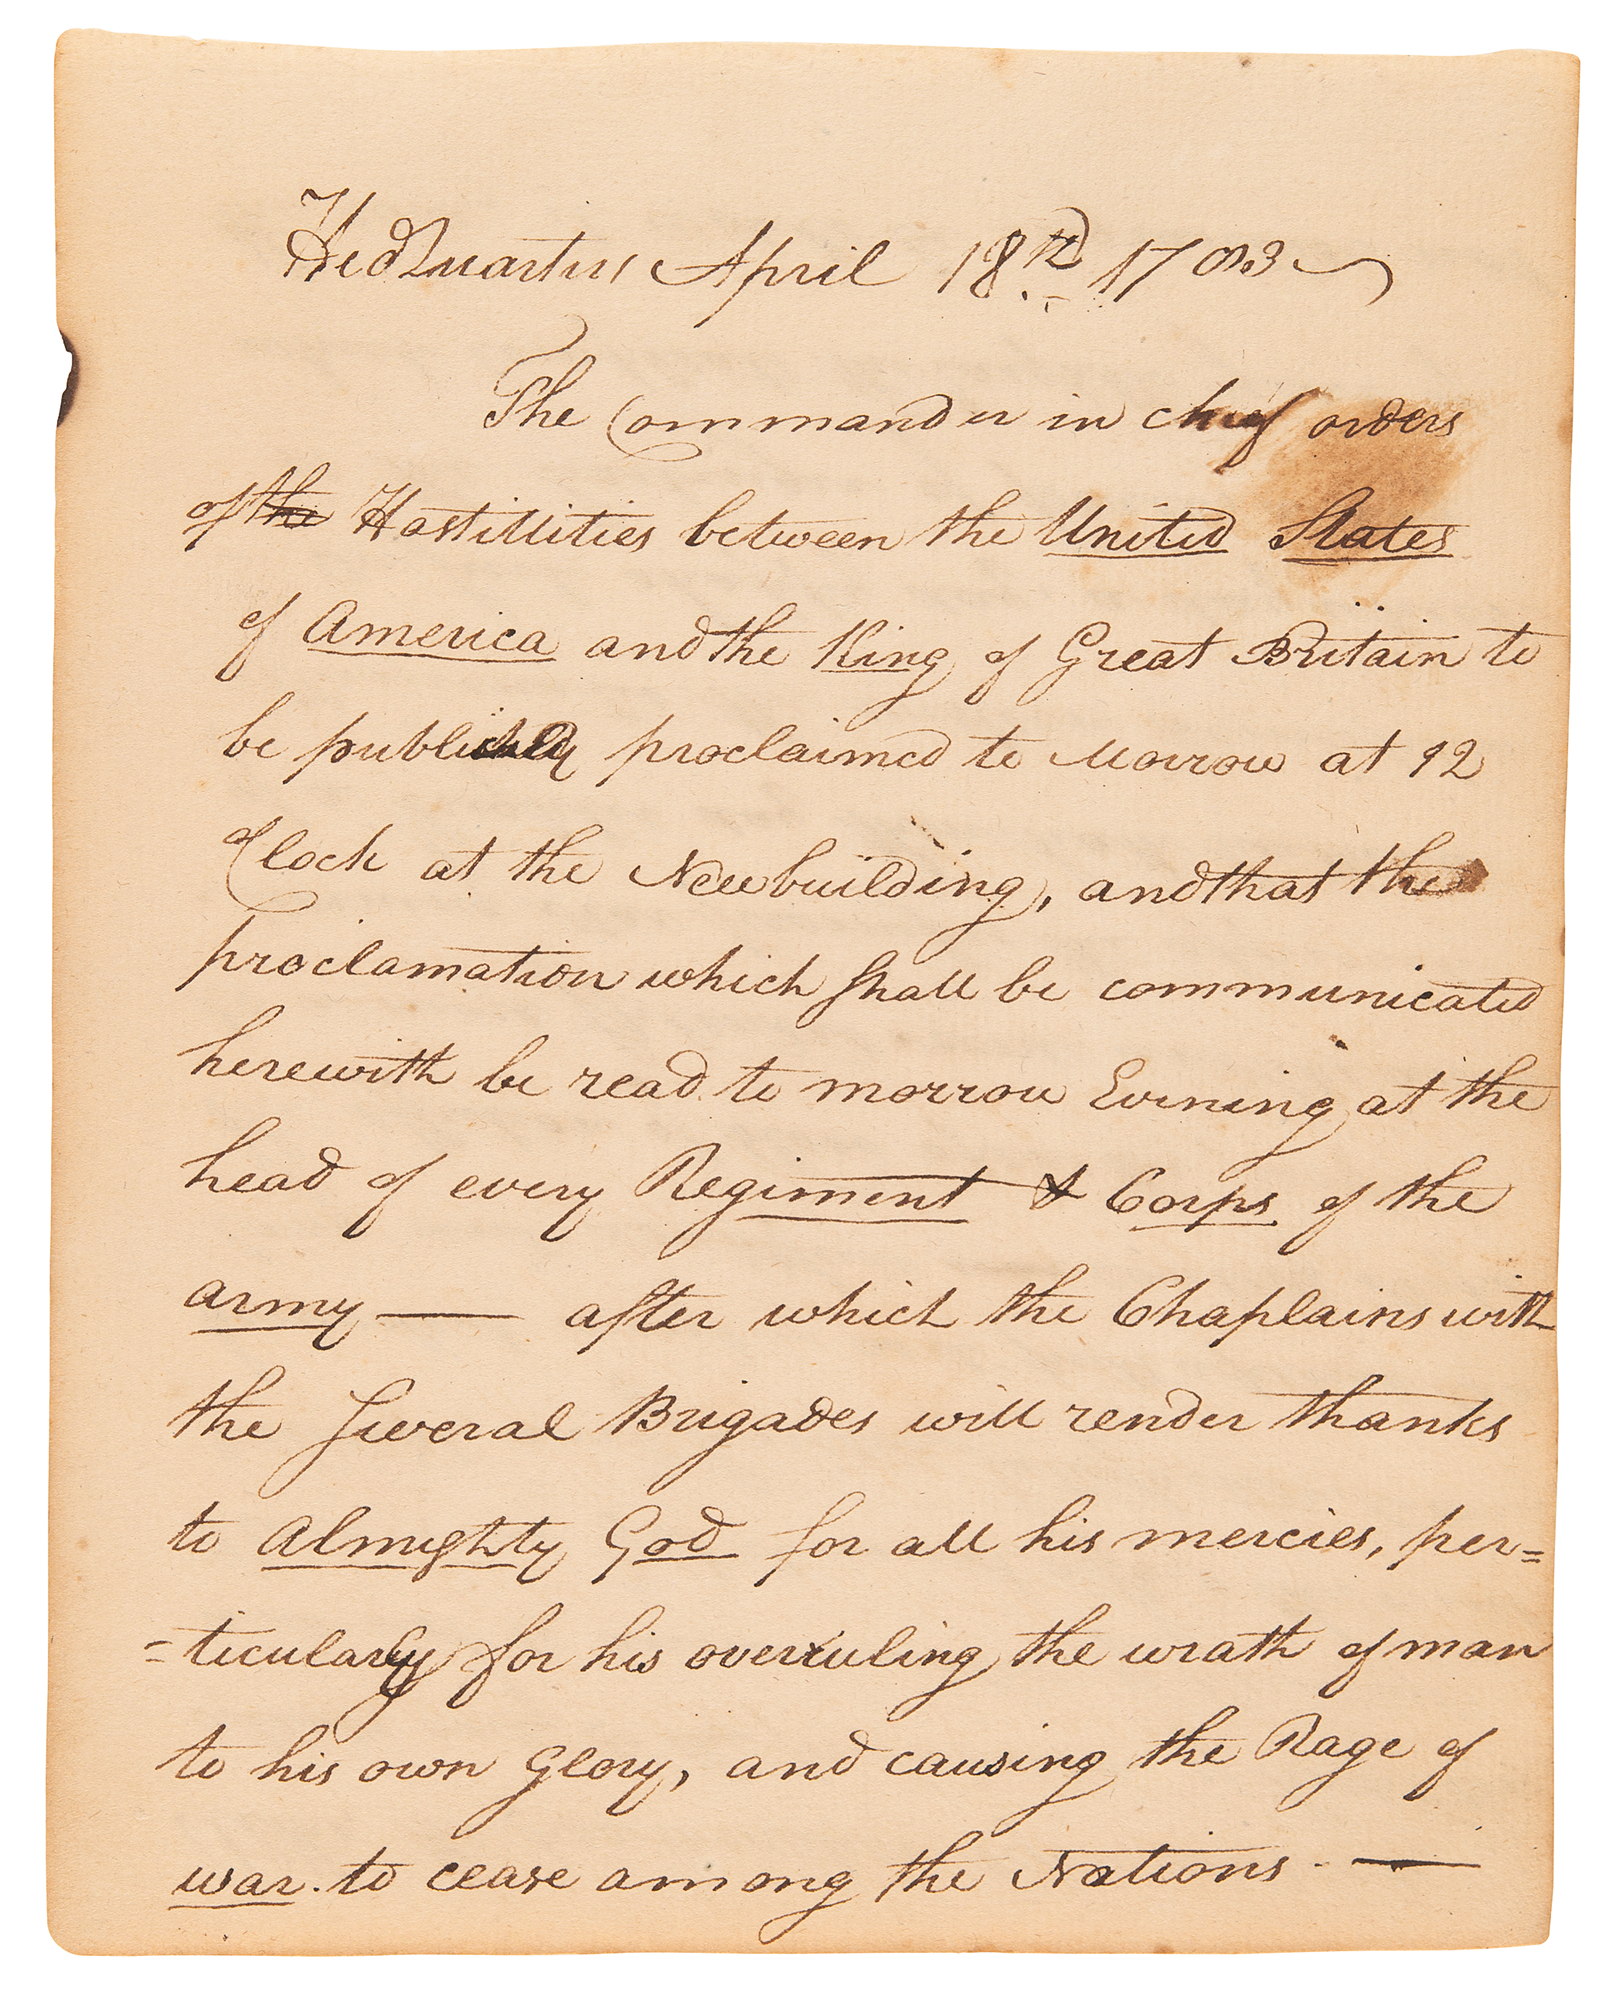 HedQuarters April 18th 1783
The Commander in chief orders
of the Hostillities between the United States
of America and the King of Great Britain to
be publickly proclaimed to Morrow at 12
oClock at the Newbuilding, and that the
proclamation which shall be communicated
herewith be read to morrow Evening at the
head of every Regiment & Corps of the
army — after which the Chaplains with
the Several Brigades will render thanks
to Almighty God for all his mercies, per=
=ticularly for his overruling the wrath of man
to his own Glory, and causing the Rage of
war. to cease among the Nations. —